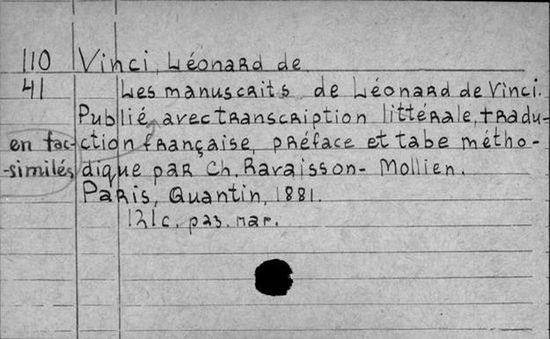 110 Vinci, Léonard de.
41 Les manuscrits de Léonard de Vinci.
Publié, avec transcription littérale, tradu-
en fac- ction française, préface et tabe métho-
-similés dique par Ch, Ravaisson-Mollien.
Paris, Quantin, 1881.
121c. раз. пар.